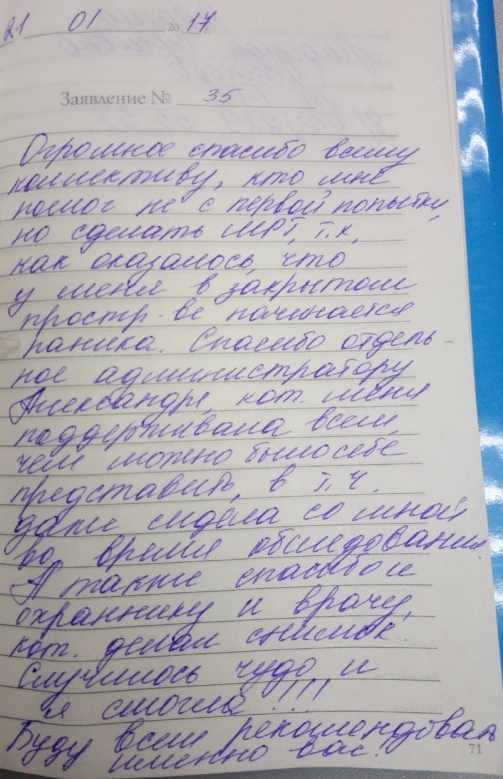 21 01 20 17
Заявление № 35
Огромное спасибо всему
коллективу, кто мне
помог не с первой попытки,
но сделать МРТ, т.к,
как оказалось, что
у меня в закрытом
простр-ве начинается
паника. Спасибо отдель-
ное администратору
Александре, кот. меня
поддерживала всем,
чем можно было себе
представить, в т.ч.
даже сидела со мной
во время обследования.
А также спасибо и
охраннику и врачу,
кот. делал снимок.
Случилось чудо и
я смогла!!!!
Буду всем рекомендовать
именно вас!
71